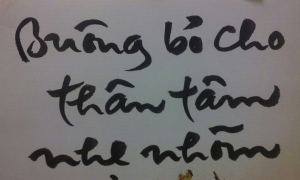 Buông bỏ cho
thân tâm
nhẹ nhõm